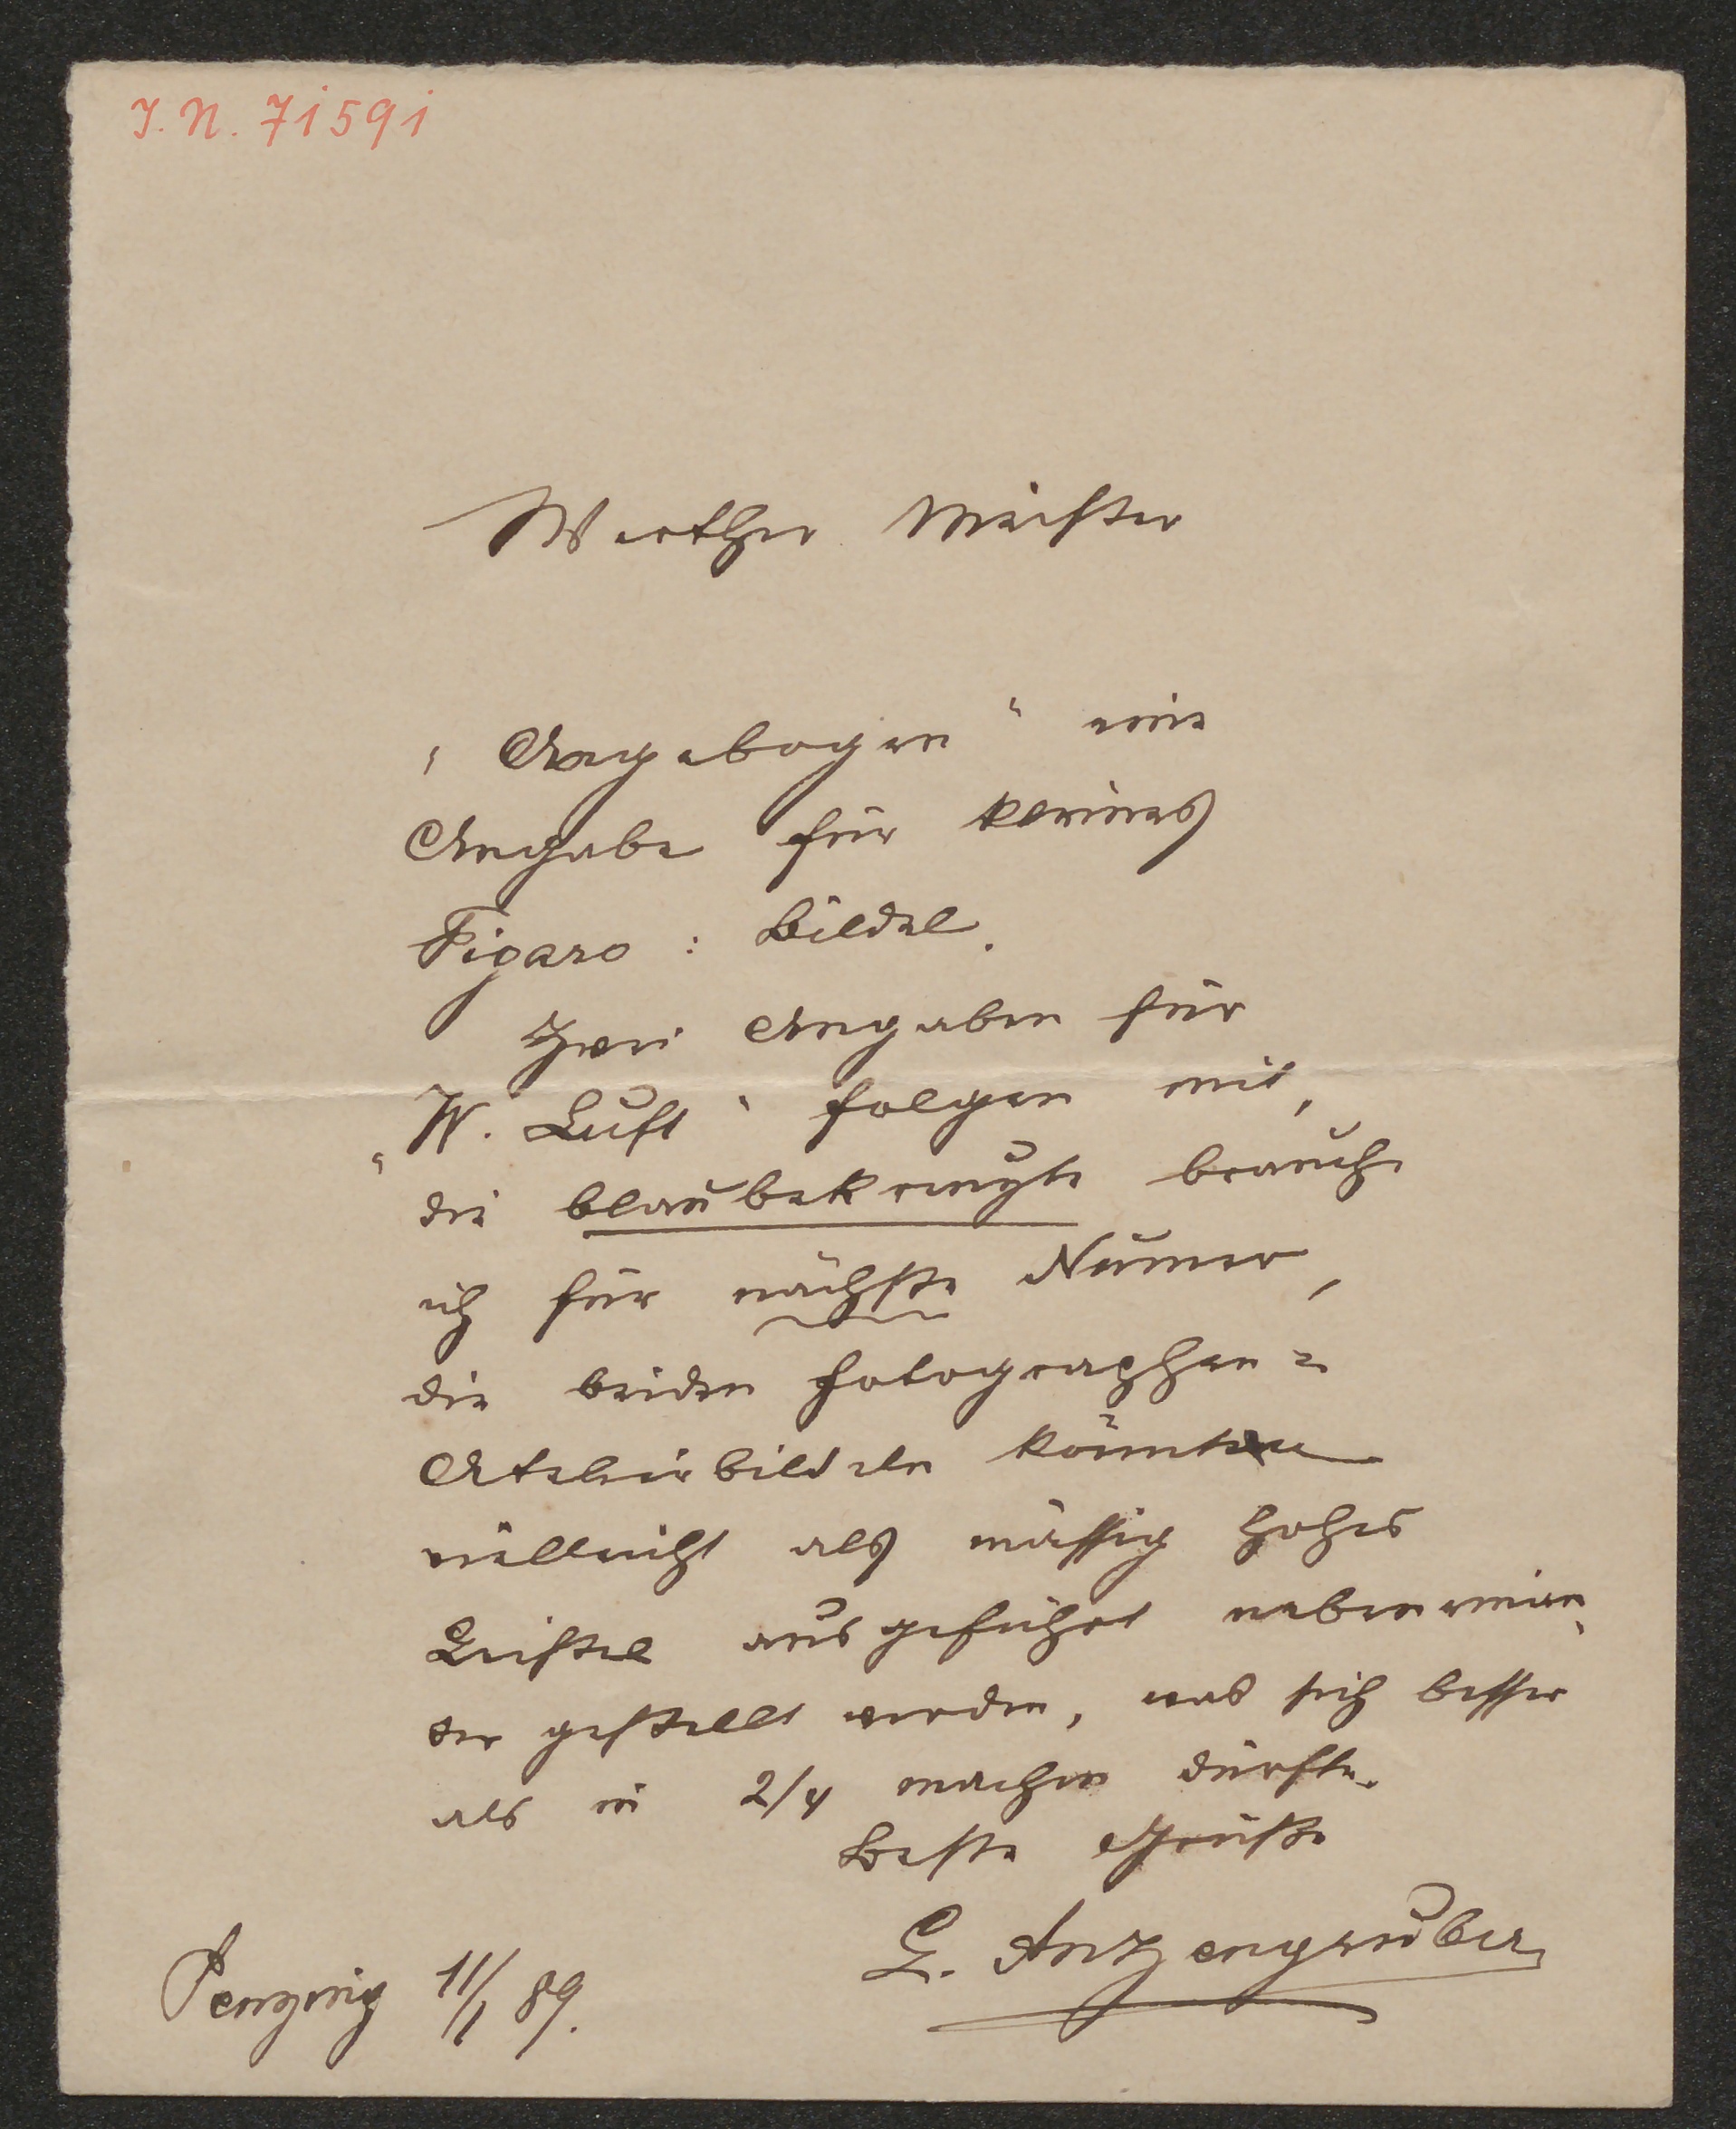 J. N. 71591
Werther Meister
„Angebogen“ eine
Angabe für kleines
Figaro: Bildel.
Zwei Angaben für
„W. Luft“ folgen mit,
die blaubekreuzte brauche
ich für nächste Numer,
die beiden Fotographen=
Atelierbildeln könnten
vielleicht als mässig hohes
Leistel ausgeführt nebeneinan=
der gestellt werden, was sich besser
als in 2/4 machen dürfte.
Beste Grüße
L. Anzengruber
Penzing 11/1 89.